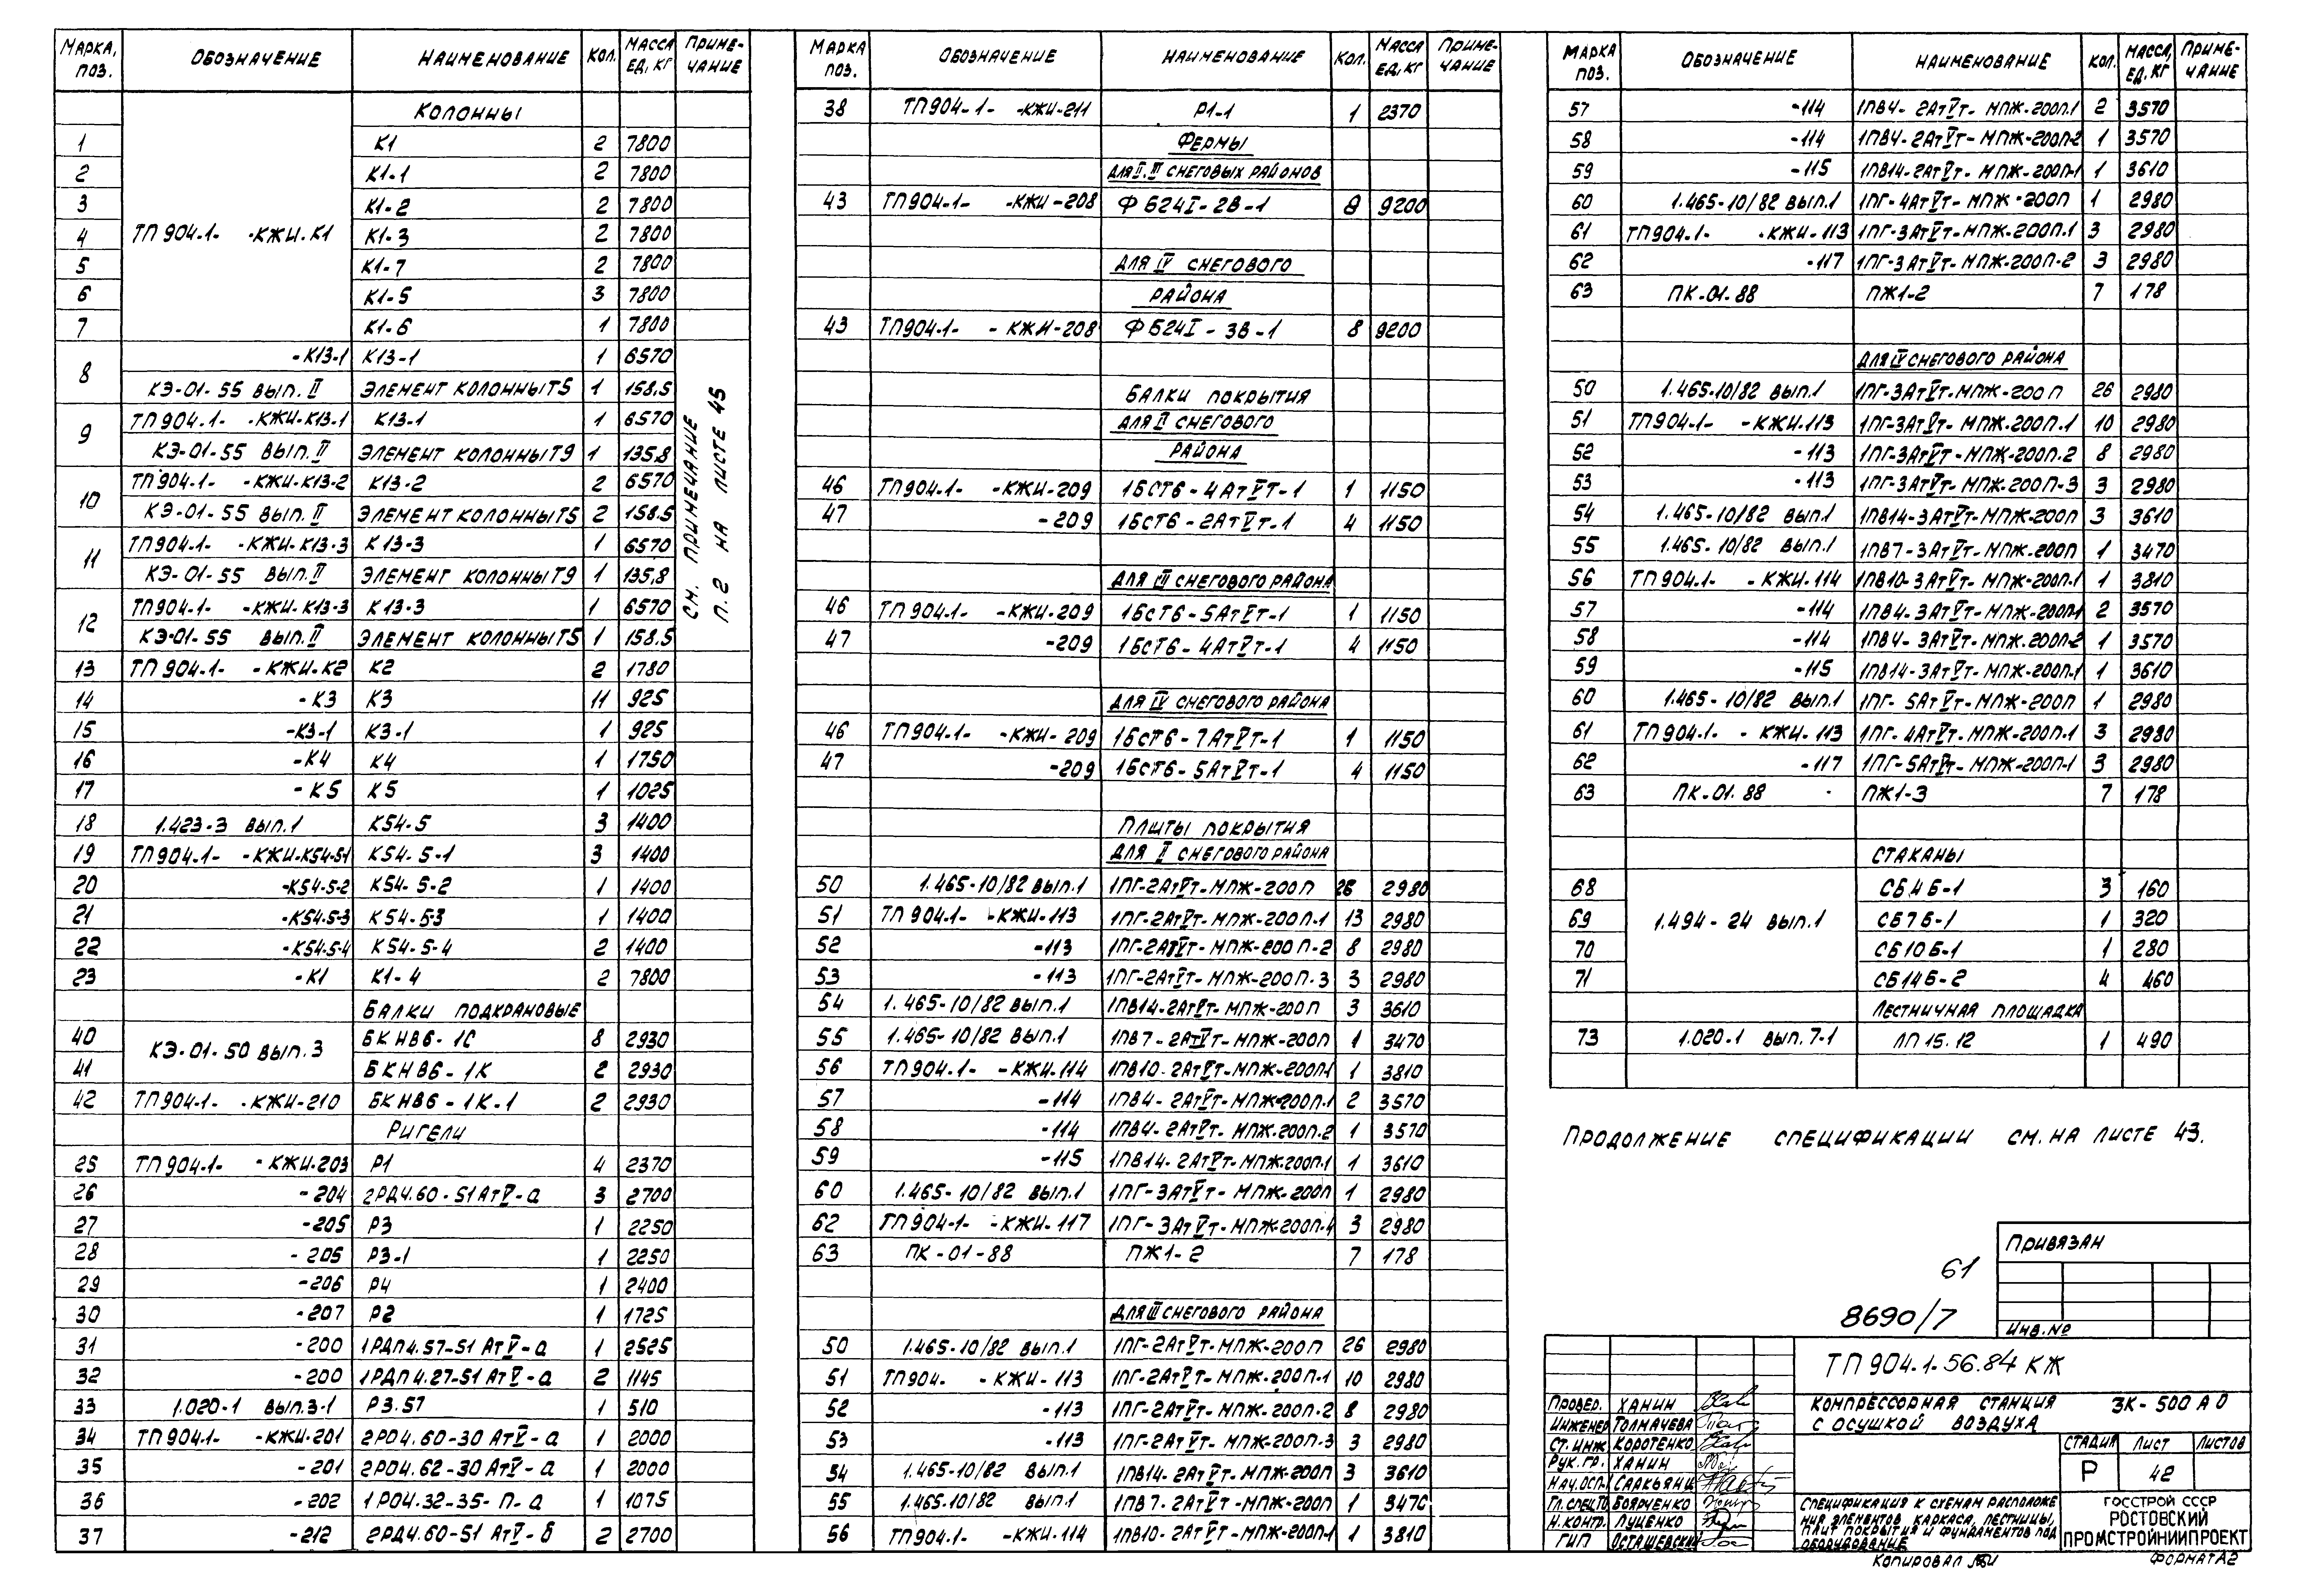 Марка, поз. Обозначение Наименование Кол. Масса ед, кг Приме-чание
Колонны
1 К1 2 7800
2 К1-1 2 7800
3 К1-2 2 7800
4 ТП 904-1- -КЖИ-К1 К1-3 2 7800
5 К1-7 2 7800
6 К1-5 3 7800
7 К1-6 1 7800
8 -К13-1 К13-1 1 6570
КЭ-01-55 вып. II Элемент колонны Т5 1 158.5
9 ТП904-1- -КЖИ-К13-1 К13-1 1 6570
КЭ-01-55 вып. II Элемент колонны Т9 1 135,8
10 ТП904-1- -КЖИ-К13-2 К13-2 2 6570
КЭ-01-55 вып. II Элемент колонны Т5 2 158.5
11 ТП904-1- -КЖИ-К13-3 К13-3 1 6570
КЭ-01-55 вып. II Элемент колонны Т9 1 135,8
12 ТП904-1- -КЖИ-К13-3 К13-3 1 6570
КЭ-01-55 вып. II Элемент колонны Т5 1 158.5
См. примечание
п. 2 на листе 45
13 ТП 904-1- -КЖИ-К2 К2 2 1780
14 -К3 К3 11 925
15 -К3-1 К3-1 1 925
16 -К4 К4 1 1750
17 -К5 К5 1 1025
18 1.423-3 вып.1 К54-5 3 1400
19 ТП904-1- -КЖИ-К54-5-1 К54-5-1 3 1400
20 -К54-5-2 К54-5-2 1 1400
21 -К54-5-3 К54-5-3 1 1400
22 -К54-5-4 К54-5-4 2 1400
23 -К1 К1-4 2 7800
Балки подкрановые
40 КЭ-01-50 вып. 3 БКНВ6-1С 8 2930
41 БКНВ6-1К 2 2930
42 ТП904-1- -КЖИ-210 БКНВ6-1К-1 2 2930
Ригели
25 ТП904-1- -КЖИ-203 Р1 4 2370
26 -204 2РД4.60-51АтV-а 3 2700
27 -205 Р3 1 2250
28 -205 Р3-1 1 2250
29 -206 Р4 1 2400
30 -207 Р2 1 1725
31 -200 1РДП4.57-51 АтV-а 1 2525
32 -200 1РДП4.27-51 АтV-а 2 1145
33 1.020-1 вып.3-1 Р3.57 1 510
34 ТП904-1- -КЖИ-201 2РО4.60-30 АтV-а 1 2000
35 -201 2РО4.62-30 АтV-а 1 2000
36 -202 1РО4.32-35-П-а 1 1075
37 -212 2РД4.60-51 АтV-б 2 2700
Марка поз. Обозначение Наименование Кол. Масса ед, кг Приме-чание
38 ТП904-1- -КЖИ-211 Р1-1 1 2370
Фермы
для II, III снеговых районов
43 ТП904-1- -КЖИ-208 ФБ24I-2В-1 8 9200
для IV снегового
района
43 ТП904-1- -КЖИ-208 ФБ24I-3В-1 8 9200
Балки покрытия
для II снегового
района
46 ТП904-1- -КЖИ-209 1БСТ6-4АтVТ-1 1 1150
47 -209 1БСТ6-2АтVт-1 4 1150
для III снегового района
46 ТП904-1- -КЖИ-209 1БСТ6-5АтVт-1 1 1150
47 -209 1БСТ6-4АтVт-1 4 1150
для IV снегового района
46 ТП904-1- -КЖИ-209 1БСТ6-7АтVт-1 1 1150
47 -209 1БСТ6-5АтVт-1 4 1150
Плиты покрытия
для II снегового района
50 1.465-10/82 вып.1 1ПГ-2АтVт-МПЖ-200П 26 2980
51 ТП904-1- -КЖИ-113 1ПГ-2АтVт-МПЖ-200П-1 13 2980
52 -113 1ПГ-2АтVт-МПЖ-200П-2 8 2980
53 -113 1ПГ-2АтVт-МПЖ-200П-3 3 2980
54 1.465-10/82 вып.1 1ПВ14-2АтVт-МПЖ-200П 3 3610
55 1.465-10/82 вып.1 1ПВ7-2АтVт-МПЖ-200П 1 3470
56 ТП904-1- -КЖИ-114 1ПВ10-2АтVт-МПЖ-200П-1 1 3810
57 -114 1ПВ4-2АтVт-МПЖ-200П-1 2 3570
58 -114 1ПВ4-2АтVт-МПЖ-200П-2 1 3570
59 -115 1ПВ14-2АтVт-МПЖ-200П-1 1 3610
60 1.465-10/82 вып.1 1ПГ-3АтVт-МПЖ-200П 1 2980
62 ТП904-1- -КЖИ-117 1ПГ-3АтVт-МПЖ-200П-4 3 2980
63 ПК-01-88 ПЖ1-2 7 178
Для III снегового района
50 1.465-10/82 вып.1 1ПГ-2АтVт-МПЖ-200П 26 2980
51 ТП904- -КЖИ-113 1ПГ-2АтVт-МПЖ-200П-1 10 2980
52 -113 1ПГ-2АтVт-МПЖ-200П-2 8 2980
53 -113 1ПГ-2АтVт-МПЖ-200П-3 3 2980
54 1.465-10/82 вып.1 1ПВ14-2АтVт-МПЖ-200П 3 3610
55 1.465-10/82 вып.1 1ПВ7-2АтVт-МПЖ-200П 1 3470
56 ТП904-1- -КЖИ-114 1ПВ10-2АтVт-МПЖ-200П-1 1 3810
Марка поз. Обозначение Наименование Кол. Масса, ед, кг Приме-чание
57 -114 1ПВ4-2АтVт-МПЖ-200П-1 2 3570
58 -114 1ПВ4-2АтVт-МПЖ-200П-2 1 3570
59 -115 1ПВ14-2АтVт-МПЖ-200П-1 1 3610
60 1.465-10/82 вып.1 1ПГ-4АтVт-МПЖ-200П 1 2980
61 ТП904-1- -КЖИ-113 1ПГ-3АтVт-МПЖ-200П-1 3 2980
62 -117 1ПГ-3АтVт-МПЖ-200П-2 3 2980
63 ПК-01-88 ПЖ1-2 7 178
для IV снегового района
50 1.465-10/82 вып.1 1ПГ-3АтVт-МПЖ-200П 26 2980
51 ТП904-1- -КЖИ-113 1ПГ-3АтVт-МПЖ-200П-1 10 2980
52 -113 1ПГ-3АтVт-МПЖ-200П-2 8 2980
53 -113 1ПГ-3АтVт-МПЖ-200П-3 3 2980
54 1.465-10/82 вып.1 1ПВ14-3АтVт-МПЖ-200П 3 3610
55 1.465-10/82 вып.1 1ПВ7-3АтVт-МПЖ-200П 1 3470
56 ТП904-1- -КЖИ-114 1ПВ10-3АтVт-МПЖ-200П-1 1 3810
57 -114 1ПВ4-3АтVт-МПЖ-200П-1 2 3570
58 -114 1ПВ4-3АтVт-МПЖ-200П-2 1 3570
59 -115 1ПВ14-3АтVт-МПЖ-200П-1 1 3610
60 1.465-10/82 вып.1 1ПГ-5АтVт-МПЖ-200П 1 2980
61 ТП904-1- -КЖИ-113 1ПГ-4АтVт-МПЖ-200П-1 3 2980
62 -117 1ПГ-5АтVт-МПЖ-200П-1 3 2980
63 ПК-01-88 ПЖ1-3 7 178
Стаканы
68 СБ4Б-1 3 160
69 1.494-24 вып.1 СБ7Б-1 1 320
70 СБ10Б-1 1 280
71 СБ14Б-2 4 460
Лестничная площадка
73 1.020-1 вып.7-1 ЛП15.12 1 490
Продолжение спецификации см. на листе 43.
61
8690/7
Привязан
Инв.№
ТП 904-1-56.84 КЖ
Компрессорная станция 3К-500АО
с осушкой воздуха
Провер. Ханин
Инженер Толмачева
Ст.инж Коротенко
Рук.гр. Ханин
Нач.осп. Саакьянц
Гл.спец.то Боярченко
Н.контр. Луценко
ГИП Осташевский
Стадия Лист Листов
Р 42
Спецификация к схемам расположе
ния элементов каркаса, лестницы,
плит покрытия и фундаментов под
оборудование
Госстрой СССР
Ростовский
Промстройниипроект
Копировал
Формат А2